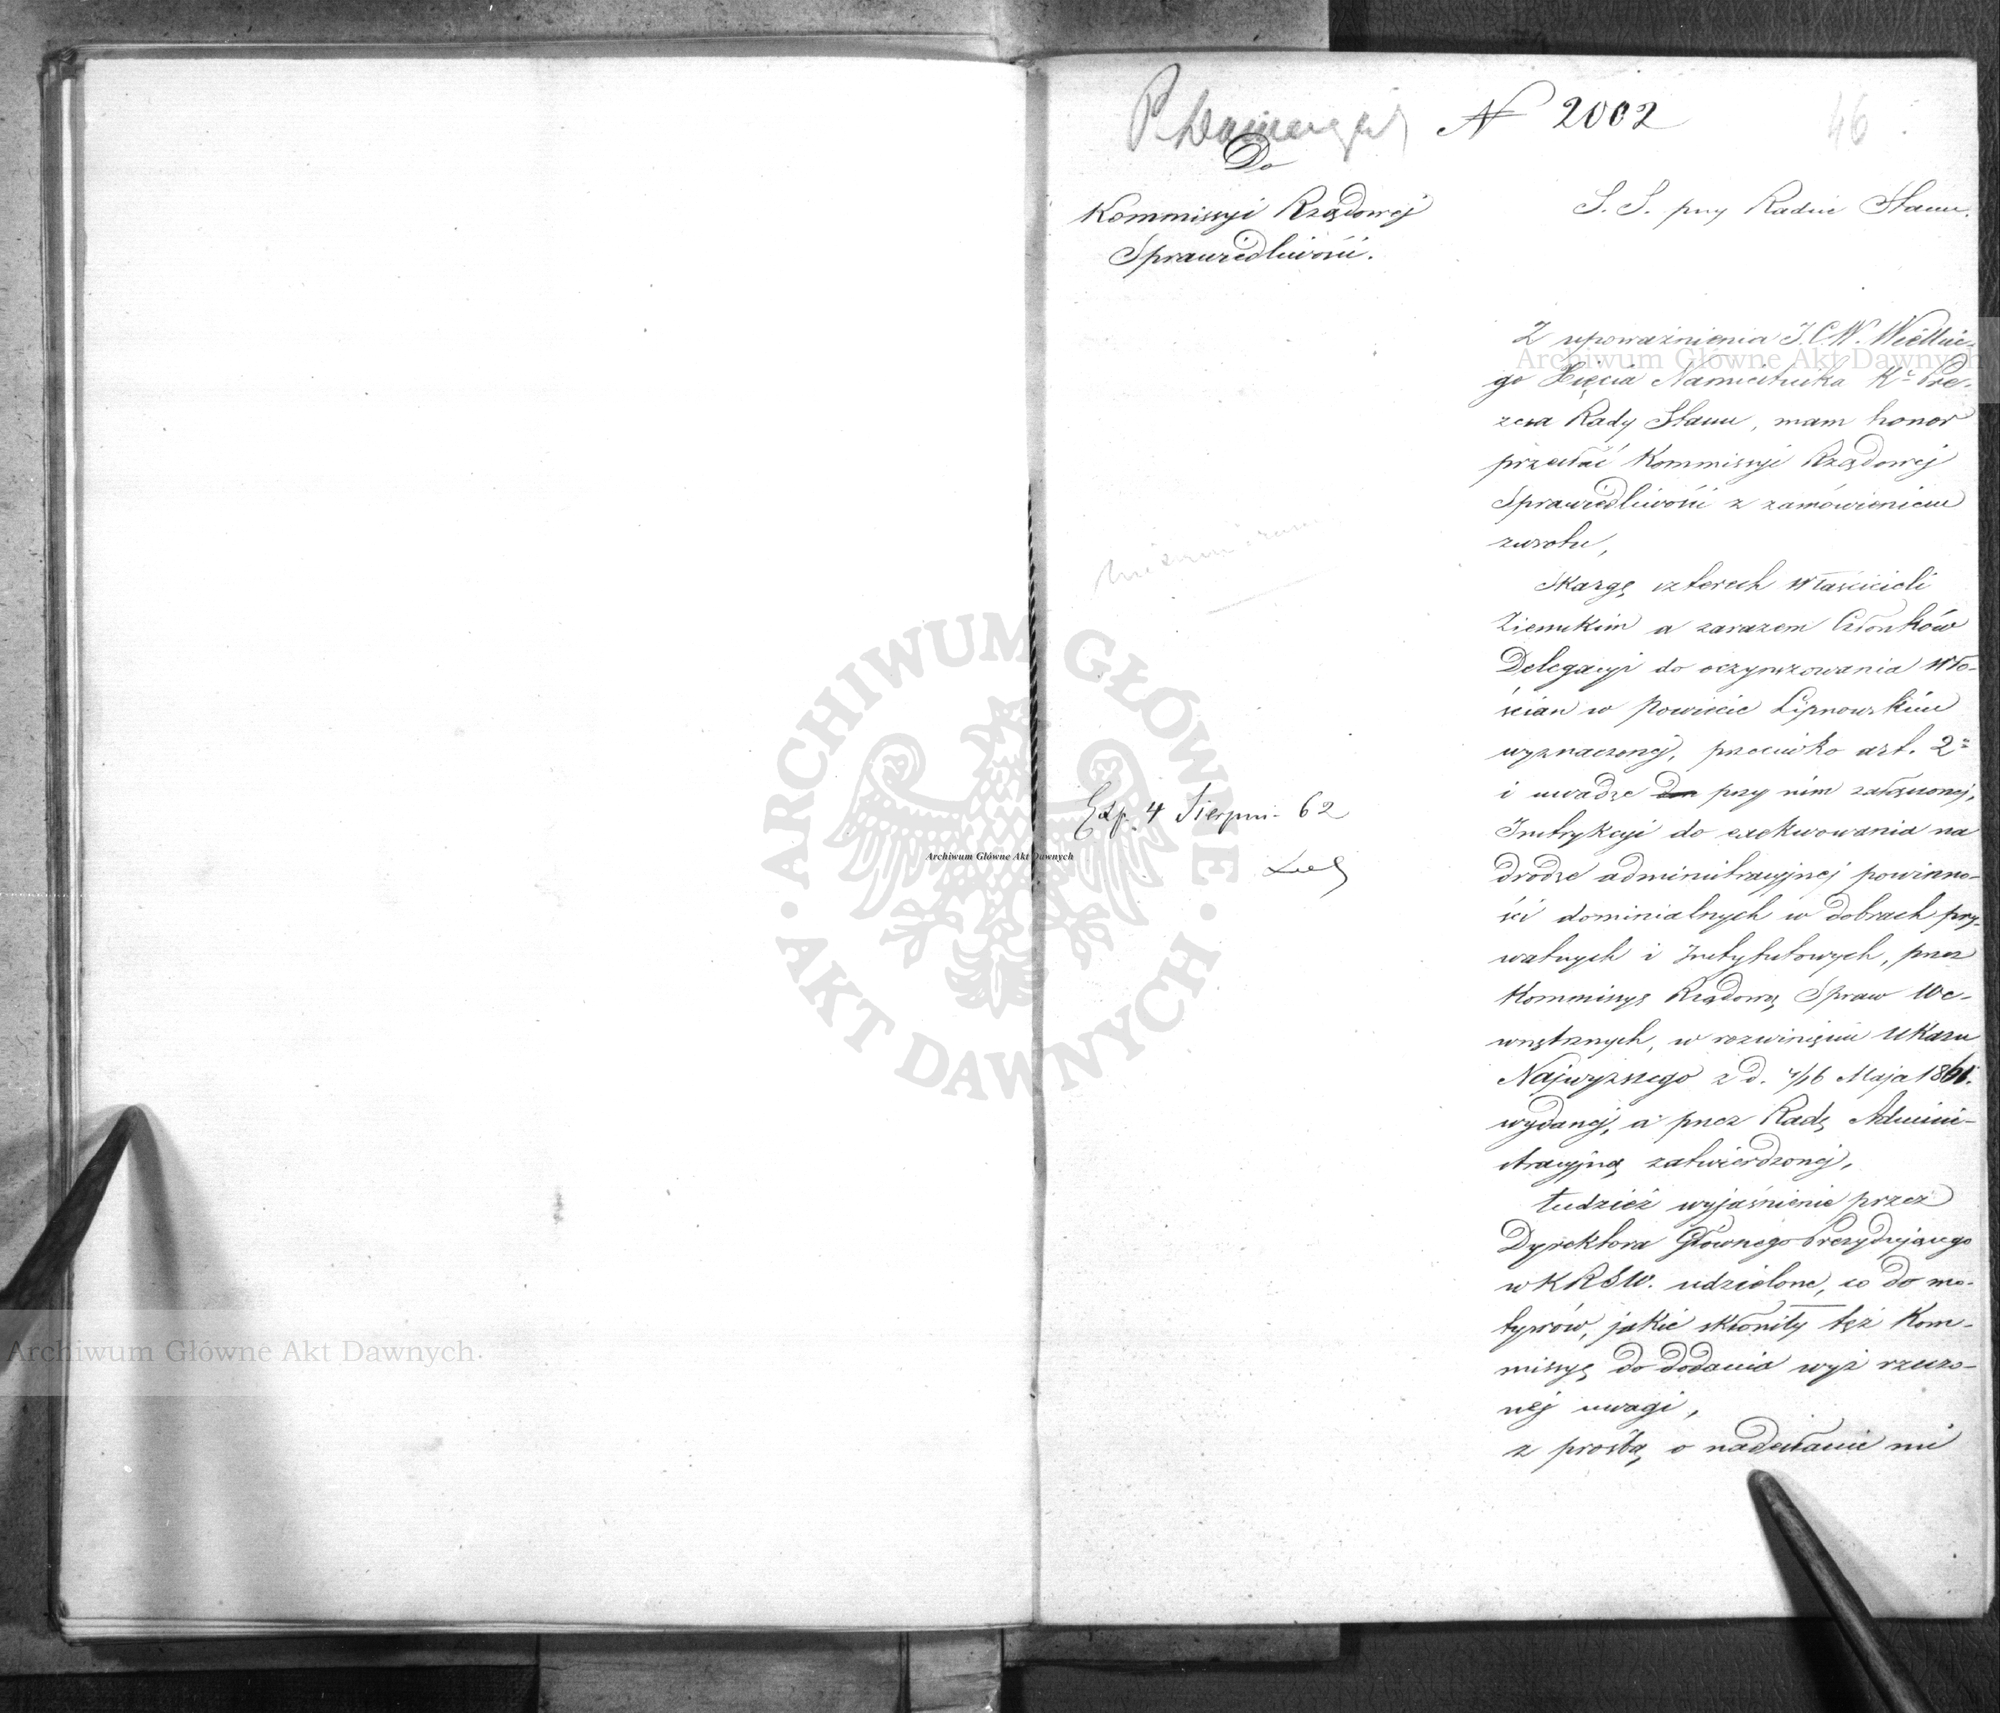 N 2002
46
Do
Kommissyi Rządowej
Sprawiedliwości.
S. S. przy Radzie Stanu.
Z upoważnienia J.C.W. Wielkie-
go Xięcia Namiestnika Kr. Pre-
zesa Rady Stanu, mam honor
przesłać Kommissyi Rządowej
Sprawiedliwości z zamówieniem
zwrotu,
Skargę czterech Właścicieli
Ziemskich a zarazem Członków
Delegacyi do oczynszowania Wło-
ścian w Powiecie Lipnowskim
wyznaczonej, przeciwko art. 2º
i uwadze przy nim załączonej,
Instrukcyi do exekwowania na
drodze administracyjnej powinno-
ści dominialnych w dobrach pry-
watnych i Instytutowych, przez
Kommissyę Rządową Spraw We-
wnętrznych, w rozwinięciu Ukazu
Najwyższego z d. 4/16 Maja 1861.
wydanej, a przez Radę Admini-
stracyjną zatwierdzonej,
tudzież wyjaśnienie przez
Dyrektora Głównego Prezydującego
w K R S W. udzielone, co do mo-
tywów, jakie skłoniły też Kom-
missyę do dodania wyż rzeczo-
nej uwagi,
z prośbą o nadesłanie mi
Exp. 4 Sierpni. 62
Archiwum Główne Akt Dawnych
Archiwum Główne Akt Dawnych
ARCHIWUM GŁÓWNE
AKT DAWNYCH
Archiwum Główne Akt Dawnych